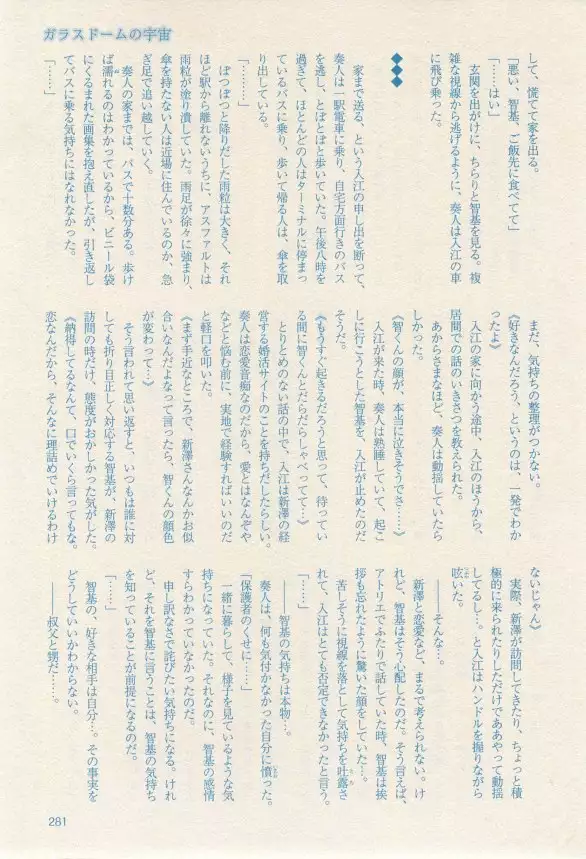 ガラスドームの宇宙
して、慌てて家を出る。
「悪い、智基、ご飯先に食べてて」
「……はい」
玄関を出がけに、ちらりと智基を見る。複
雑な視線から逃げるように、奏人は入江の車
に飛び乗った。
◆◆◆
家まで送る、という入江の申し出を断って、
奏人は一駅電車に乗り、自宅方面行きのバス
を逃し、とぼとぼと歩いていた。午後八時を
過ぎて、ほとんどの人はターミナルに停まっ
ているバスに乗り、歩いて帰る人は、傘を取
り出している。
「………」
ぽつぽつと降りだした雨粒は大きく、それ
ほど駅から離れないうちに、アスファルトは
雨粒が塗り潰していた。雨足が徐々に強まり、
傘を持たない人は近場に住んでいるのか、急
ぎ足で追い越していく。
奏人の家までは、バスで十数分ある。歩け
ば濡れるのはわかっているから、ビニール袋
にくるまれた画集を抱え直したが、引き返し
てバスに乗る気持ちにはなれなかった。
「……」
まだ、気持ちの整理がつかない。
《好きなんだろう、というのは、一発でわか
ったよ》
入江の家に向かう途中、入江のほうから、
居間での話のいきさつを教えられた。
あからさまなほど、奏人は動揺していたら
しかった。
《智くんの顔が、本当に泣きそうでさ……》
入江が来た時、奏人は熟睡していて、起こ
しに行こうとした智基を、入江が止めたのだ
そうだ。
《もうすぐ起きるだろうと思って、待ってい
る間に智くんとだらだらしゃべってて…》
とりとめのない話の中で、入江は新澤の経
営する婚活サトのことを持ちだしたらしい。
奏人は恋愛音痴なのだから、愛とはなんぞや
などと悩む前に、実地で経験すればいいのだ
と軽口を叩いた。
《まず手近なところで、新澤さんなんかお似
合いなんだよなって言ったら、智くんの顔色
が変わって…》
そう言われて思い返すと、いつもは誰に対
しても折り目正しく対応する智基が、新澤の
訪問の時だけ、態度がおかしかった気がした。
《納得してるなんて、口でいくら言ってもな。
恋なんだから、そんなに理詰めでいけるわけ
ないじゃん》
実際、新澤が訪問してきたり、ちょっと積
極的に来られたりしただけでああやって動揺
してるし。と入江はハンドルを握りながら
呟いた。
――そんな…。
新澤と恋愛など、まるで考えられない。け
れど、智基はそう心配したのだ。そう言えば、
アトリエでふたりで話していた時、智基は挨
拶も忘れたように驚いた顔をしていた…。
苦しそうに視線を落として気持ちを吐露さ
れて、入江はとても否定できなかったと言う。
「……」
――智基の気持ちは本物…。
奏人は、何も気付かなかった自分に憤った。
「保護者のくせに……」
一緒に暮らして、様子を見ているような気
持ちになっていた。それなのに、智基の感情
すらわかっていなかったのだ。
申し訳なさで詫びたい気持ちになる。けれ
ど、それを智基に言うことは、智基の気持ち
を知っていることが前提になるのだ。
「……」
智基の、好きな相手は自分…。その事実を
どうしていいかわからない。
――叔父と甥だ……。
281